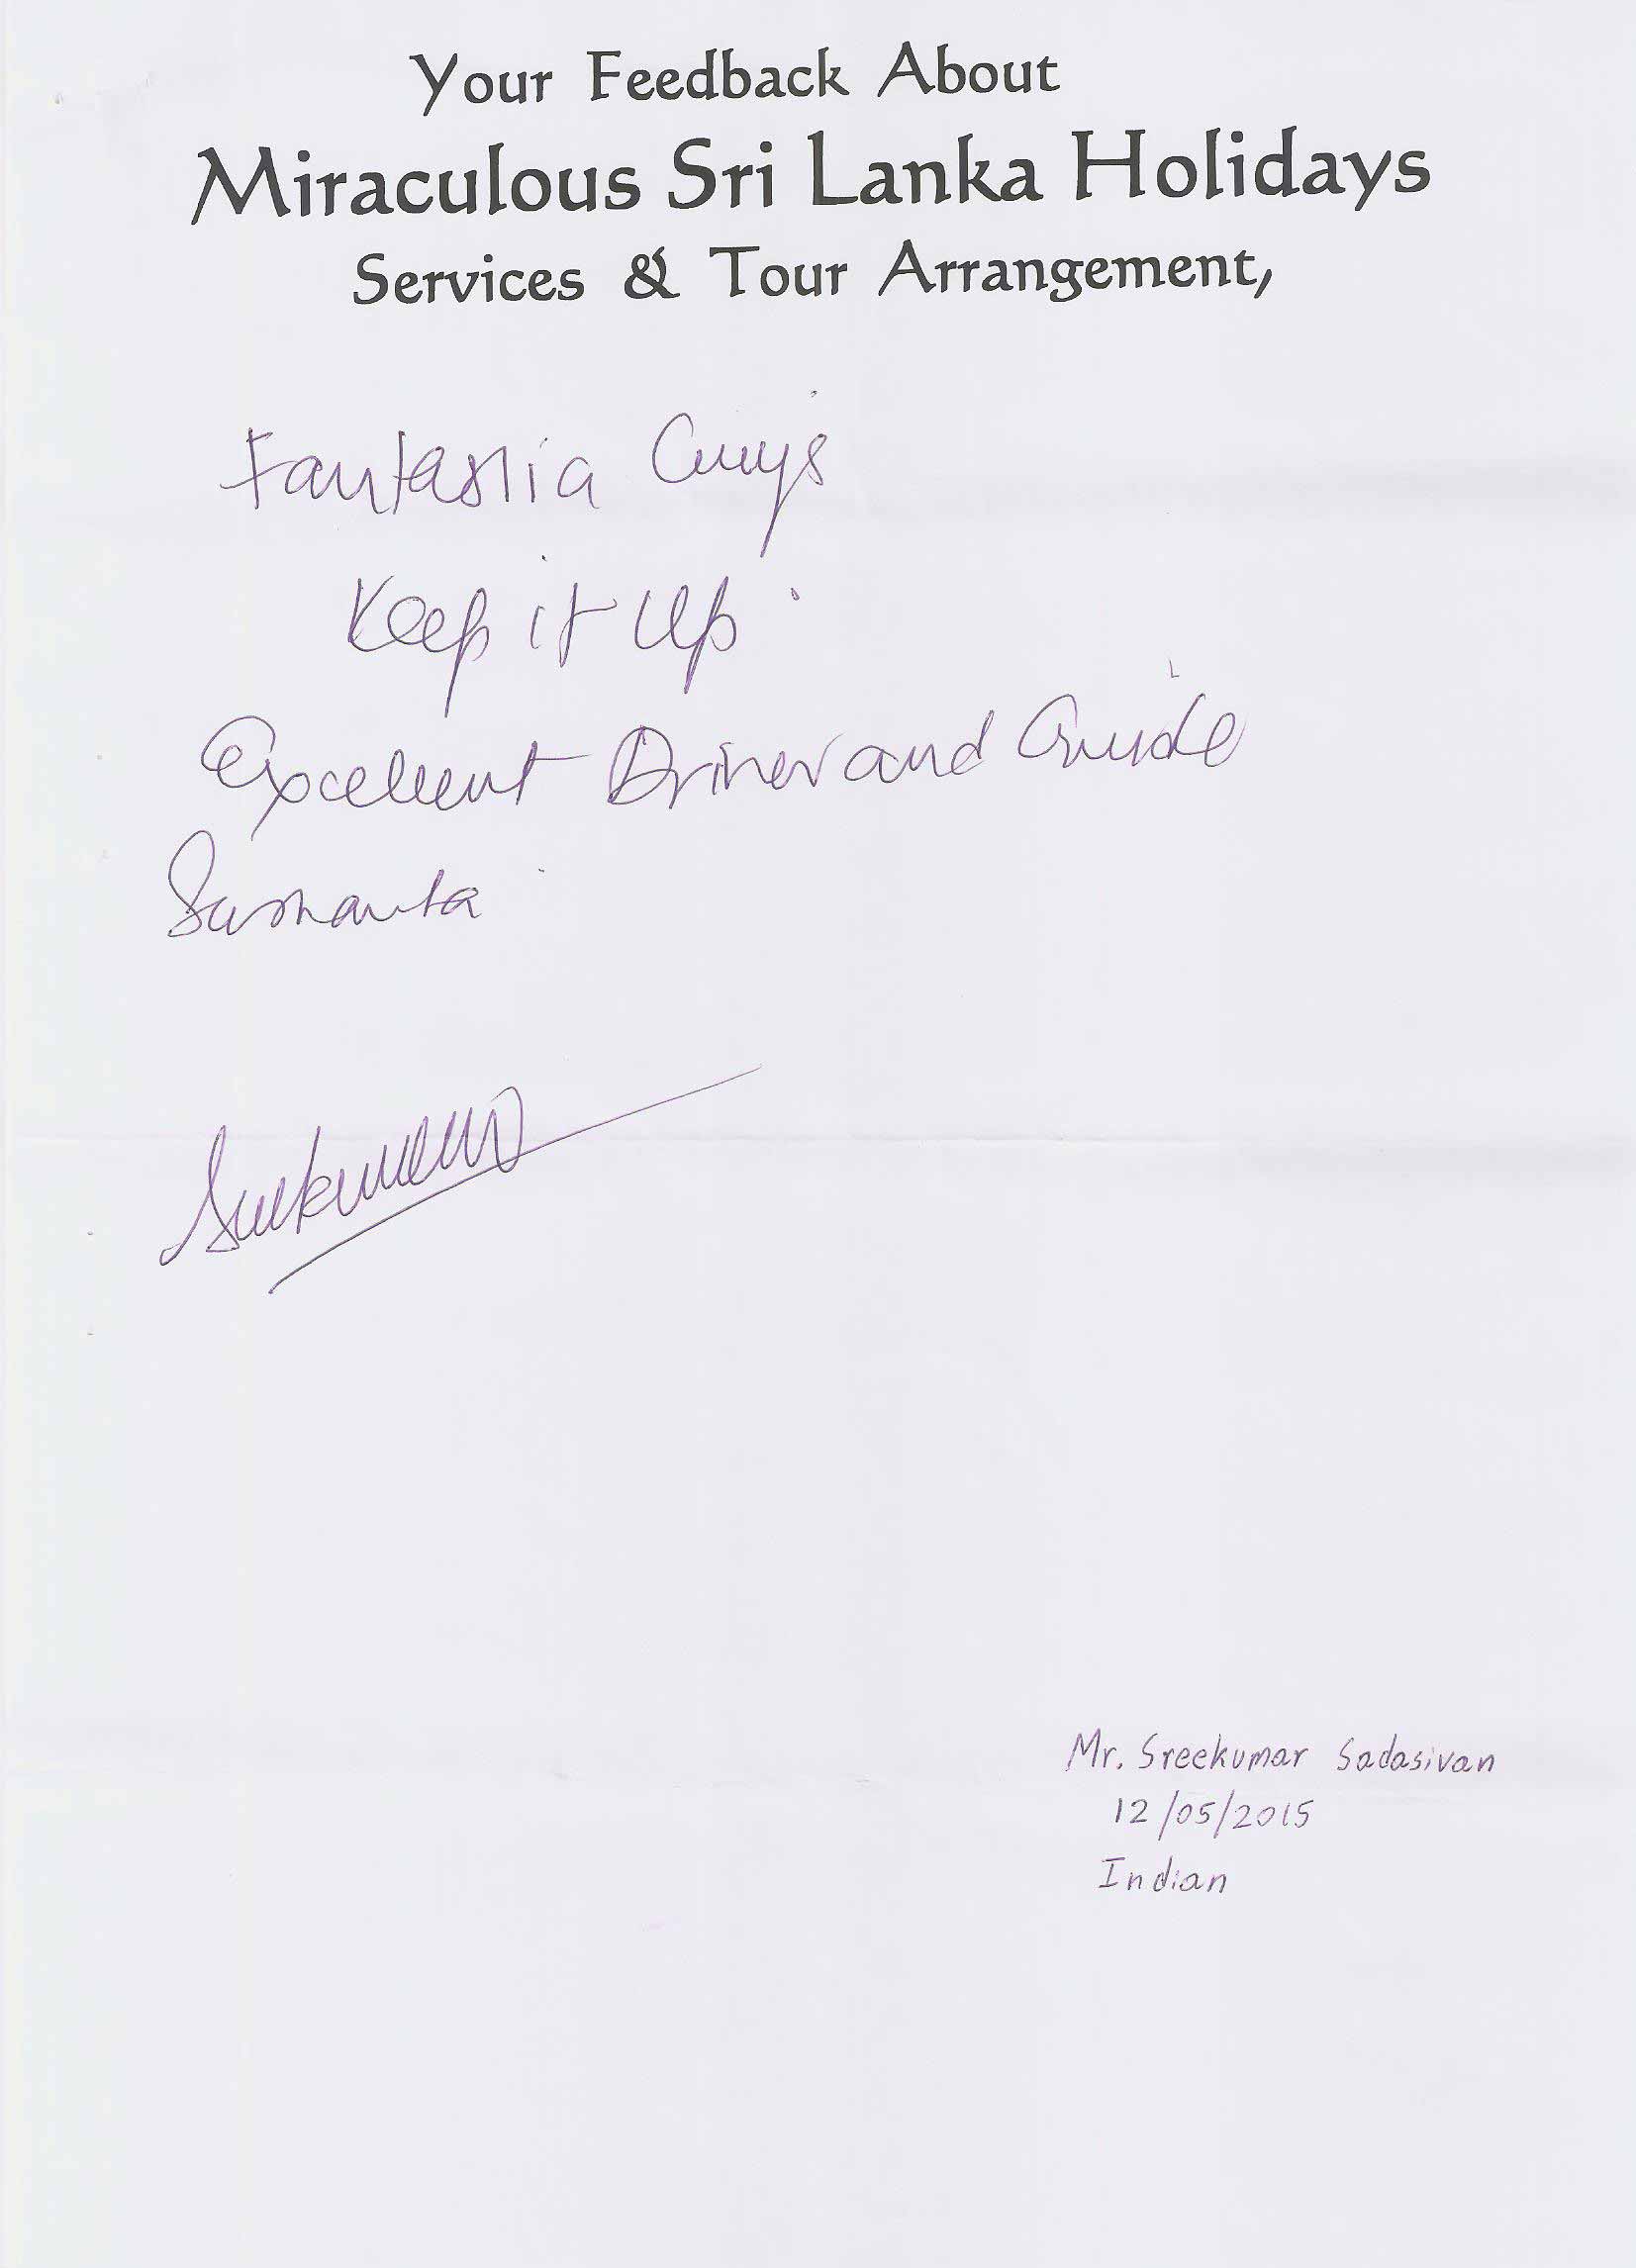 Your Feedback About
Miraculous Sri Lanka Holidays
Services & Tour Arrangement,
Fantastic Guys
Keep it up.
Excellent Driver and Guide
Sumanta
Sreekumar
Mr. Sreekumar Sadasivan
12/05/2015
Indian